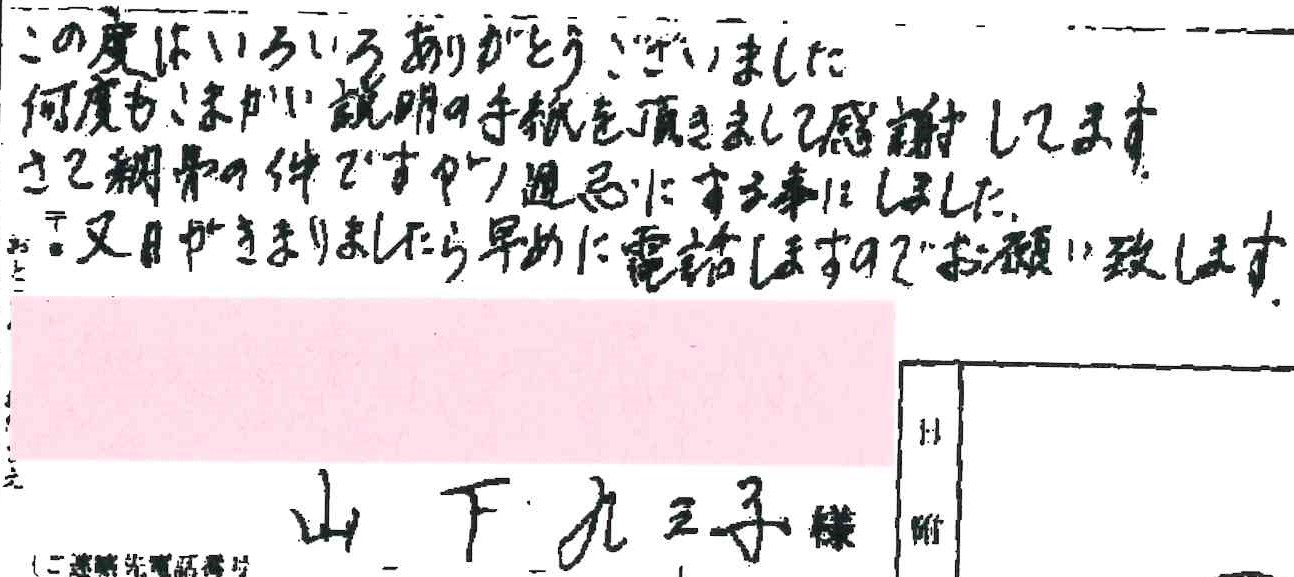 この度はいろいろありがとうございました
何度もこまかい説明の手紙を頂きまして感謝してます.
さて納骨の件ですが1週忌にする事にしました.
〒 又日がきまりましたら早めに電話しますのでお願い致します.
おところ
日附
山下 三子様
(ご連絡先電話番号